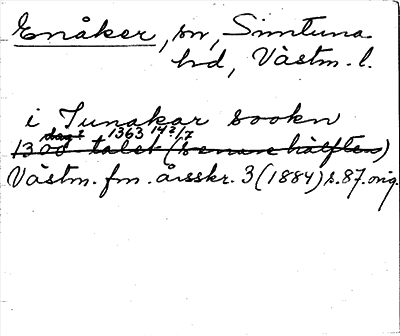 Enåker, sn, Simtuna
hd, Västm. l.
i Tunakar sookn
dag? 1363 14?/7
1300 talet (senare hälften)
Västm. fm. årsskr. 3 (1884) s. 87. orig.